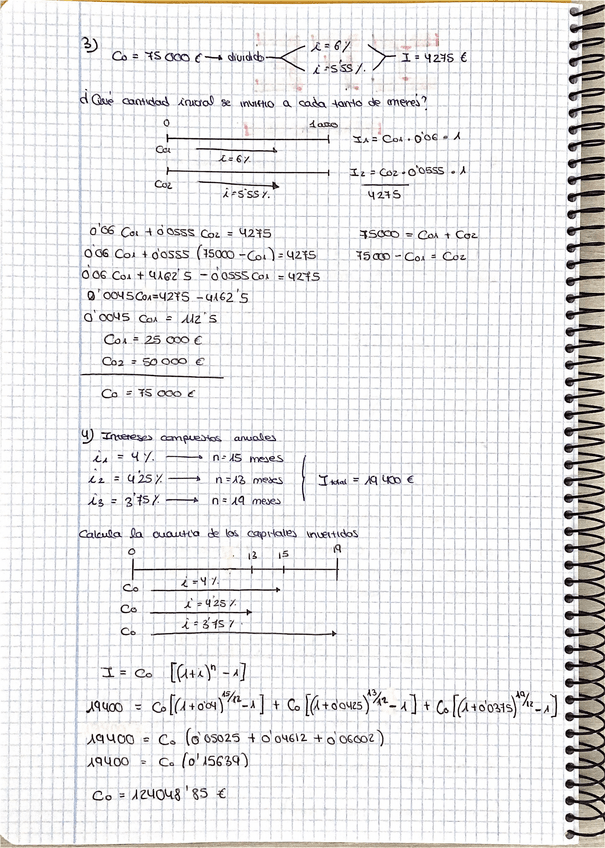 3)
Co = 75000 € → dividido
i = 6%
i = 5'55%
I = 4275 €
¿Qué cantidad inicial se invirtió a cada tanto de interés?
0
1 año
Co1
i = 6%
I1 = Co1 · 0'06 · 1
Co2
i = 5'55%
I2 = Co2 · 0'0555 · 1
4275
0'06 Co1 + 0'0555 Co2 = 4275
75000 = Co1 + Co2
0'06 Co1 + 0'0555 (75000 - Co1) = 4275
75000 - Co1 = Co2
0'06 Co1 + 4162'5 - 0'0555 Co1 = 4275
0'0045 Co1 = 4275 - 4162'5
0'0045 Co1 = 112'5
Co1 = 25000 €
Co2 = 50000 €
Co = 75000 €
4) Intereses compuestos anuales
i1 = 4% → n = 15 meses
i2 = 4'25% → n = 13 meses
i3 = 3'75% → n = 19 meses
I total = 19400 €
Calcula la cuantía de los capitales invertidos
0 13 15 19
Co i = 4%
Co i = 4'25%
Co i = 3'75%
I = Co [(1+i)^n - 1]
19400 = Co[(1+0'04)^15/12 - 1] + Co[(1+0'0425)^13/12 - 1] + Co[(1+0'0375)^19/12 - 1]
19400 = Co (0'05025 + 0'04612 + 0'06002)
19400 = Co (0'15639)
Co = 124048'85 €